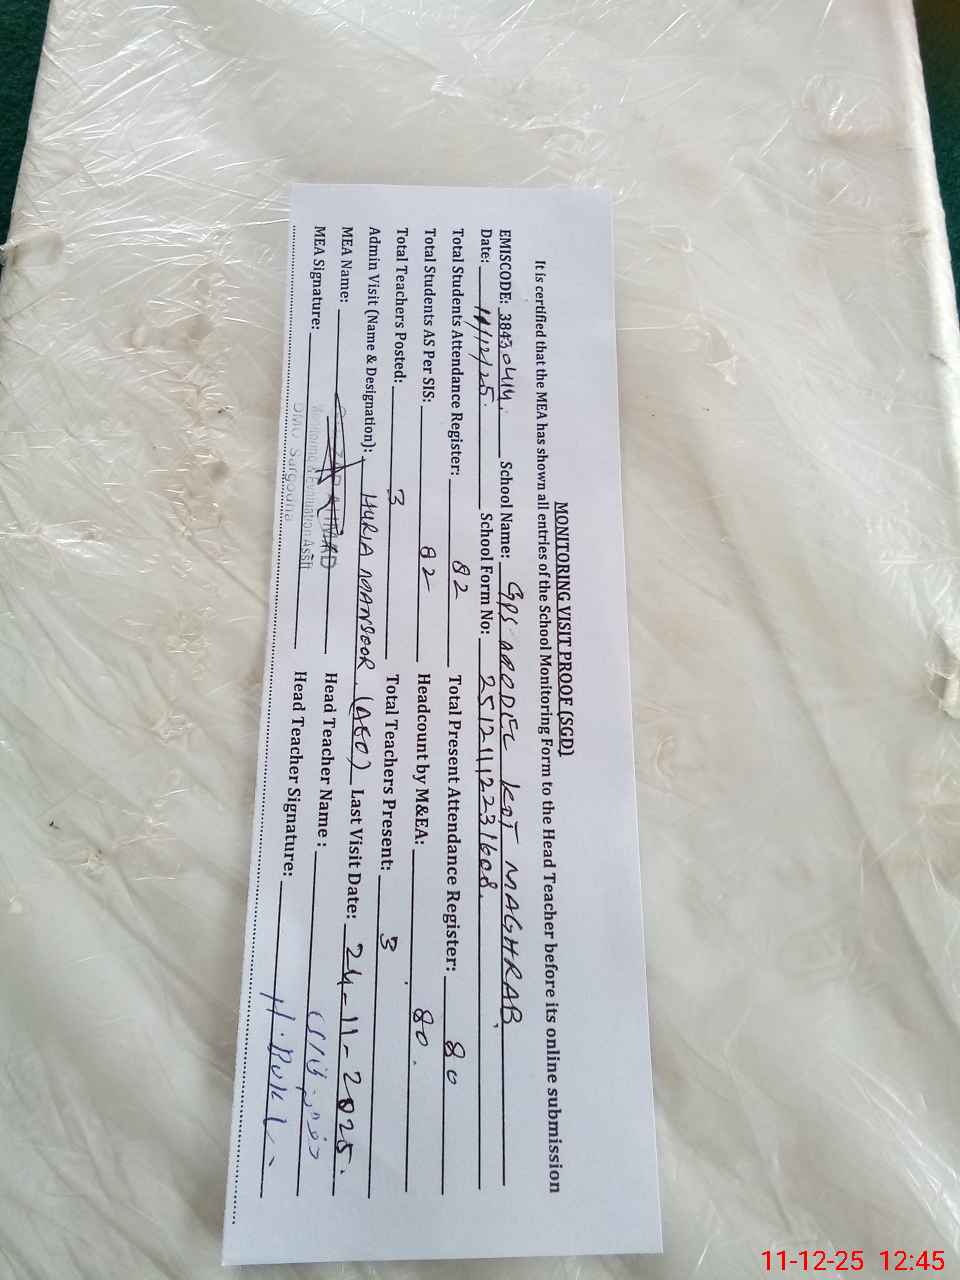 MONITORING VISIT PROOF (SGD)
It is certified that the MEA has shown all entries of the School Monitoring Form to the Head Teacher before its online submission
EMISCODE: 38430414. School Name: GPS MODEL KOT MAGHRAB.
Date: 11/12/25. School Form No: 25121112231608.
Total Students Attendance Register: 82 Total Present Attendance Register: 80
Total Students AS Per SIS: 82 Headcount by M&EA: 80.
Total Teachers Posted: 3 Total Teachers Present: 3
Admin Visit (Name & Designation): HURIA MANSOOR (AEO) Last Visit Date: 24-11-2025.
MEA Name: AHMAD Head Teacher Name:
Monitoring & Evaluation Asstt
MEA Signature: Head Teacher Signature:
DMO Sargodha
11-12-25 12:45